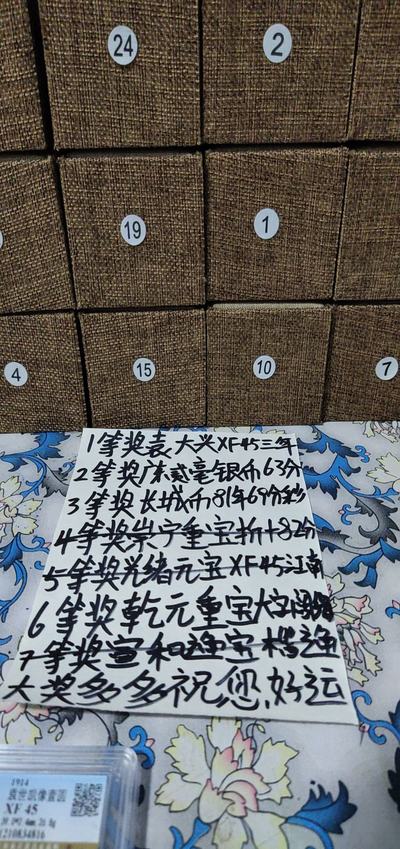 24
2
19
1
4
15
10
7
1等奖袁大头XF45三年
2等奖广东贰毫银币63分
3等奖长城币81年69分
4等奖崇宁重宝折十82分
5等奖光绪元宝XF45江南
6等奖乾元重宝大字
7等奖宣和通宝
大奖多多祝您好运
1914
袁世凯像壹圆
XF 45
1210834816